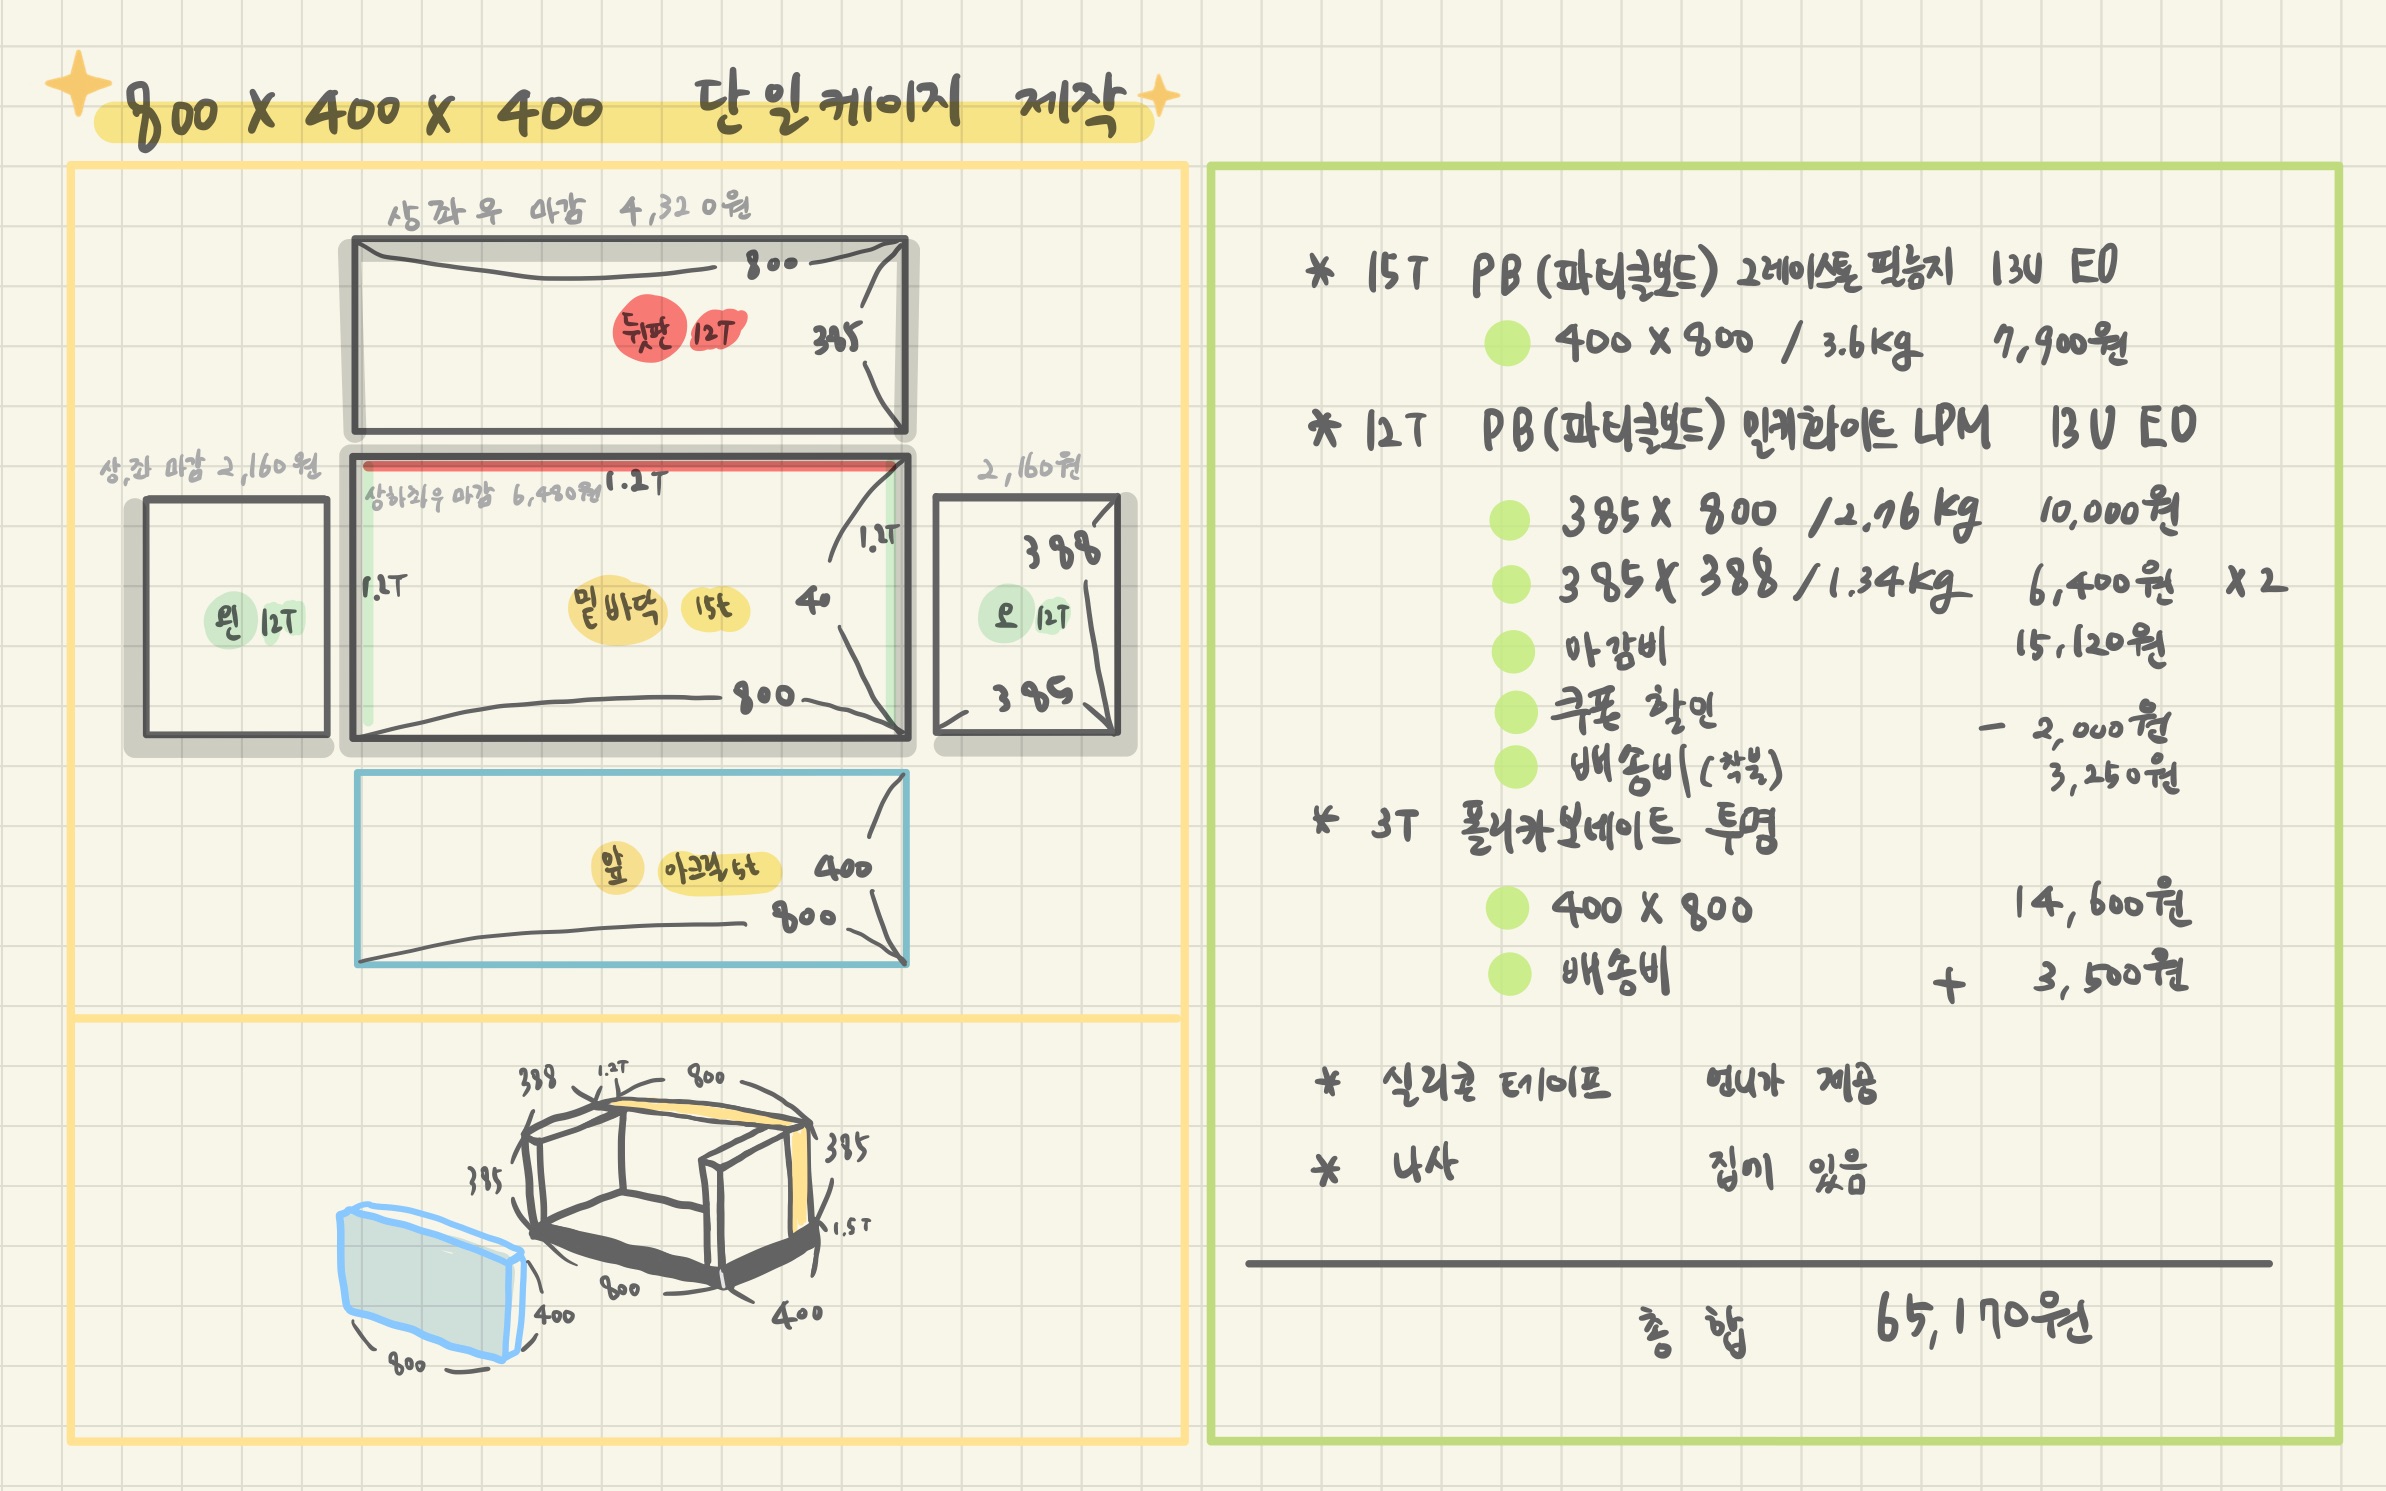 800 X 400 X 400 단일케이지 제작
상좌우 마감 4,320원
800
뒷판 12T
385
상,좌 마감 2,160원
왼 12T
상하좌우 마감 6,480원
1.2T
1.2T
1.2T
밑바닥 15t
40
800
2,160원
388
오 12T
385
앞 아크릴 5t
400
800
388
1.2T
800
385
385
1.5T
800
400
400
800
* 15T PB(파티클보드) 그레이스톤 필름지 13U E0
400 X 800 / 3.6kg 7,900원
* 12T PB(파티클보드) 밀키화이트 LPM 13U E0
385 X 800 / 2.76kg 10,000원
385 X 388 / 1.34kg 6,400원 X2
마감비 15,120원
쿠폰 할인 - 2,000원
배송비(착불) 3,250원
* 3T 폴리카보네이트 투명
400 X 800 14,600원
배송비 + 3,500원
* 실리콘 테이프 언니가 제공
* 나사 집에 있음
총 합 65,170원